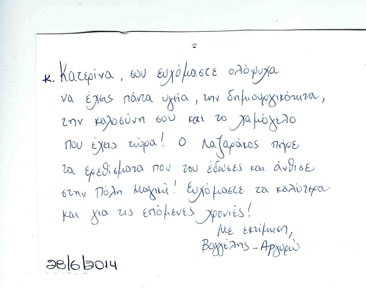 κ. Κατερίνα, σου ευχόμαστε ολόψυχα
να έχεις πάντα υγεία, την δημιουργικότητα,
την καλοσύνη σου και το χαμόγελο
που έχεις τώρα! Ο Λαζαράκος πήρε
τα ερεθίσματα που του έδωσες και άνθισε
στην Πόλη Μαγικά! Ευχόμαστε τα καλύτερα
και για τις επόμενες χρονιές!
Με εκτίμηση,
Βαγγέλης - Αργυρώ
28/6/2014